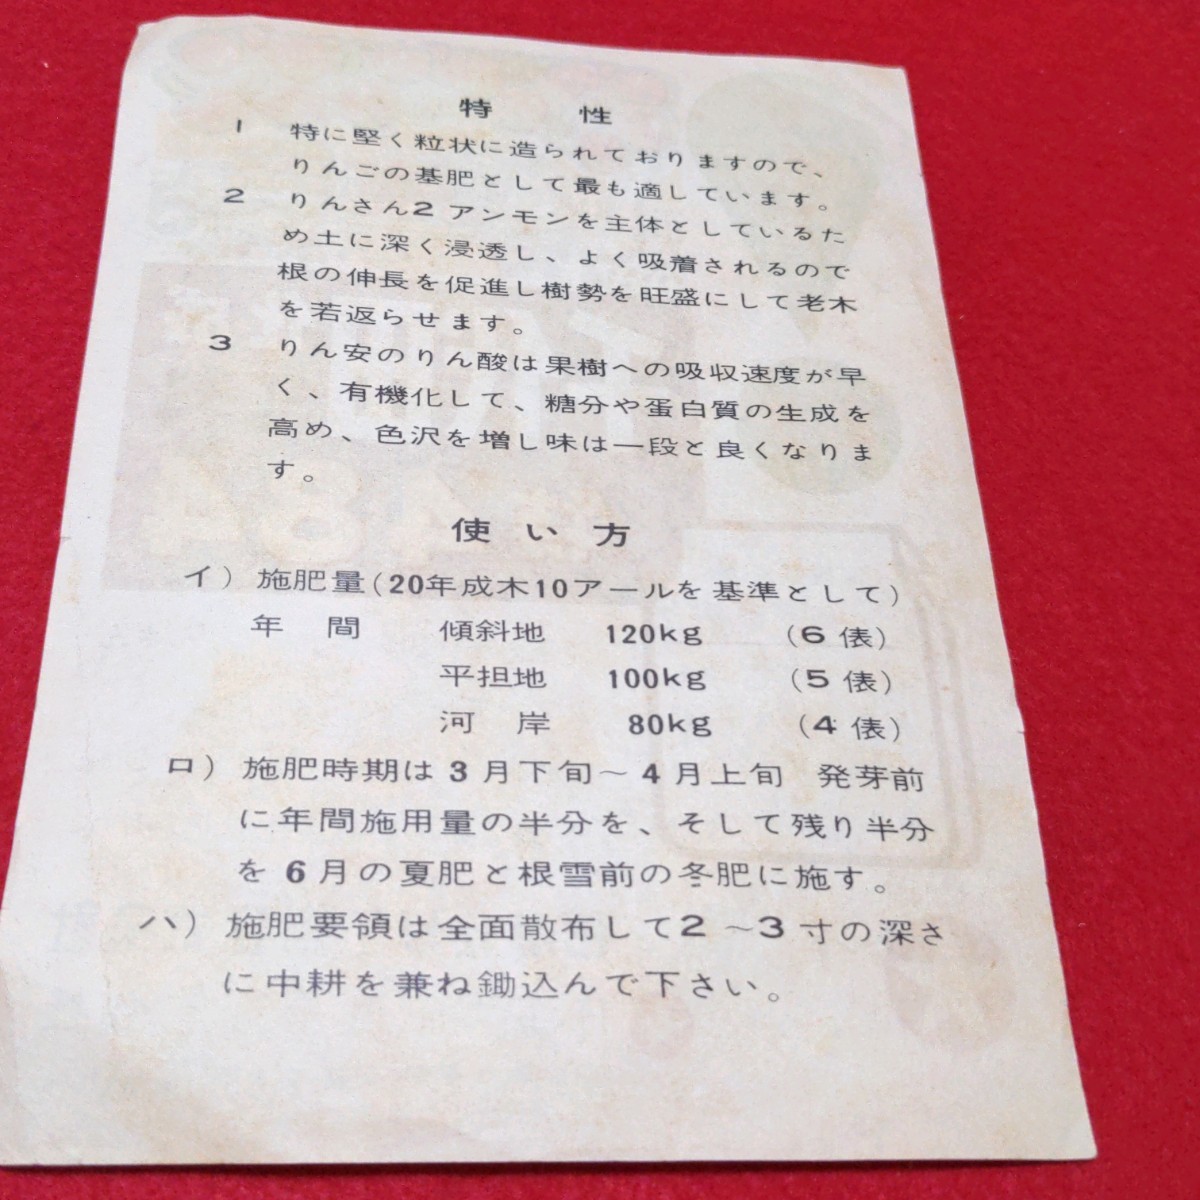 特性
1 特に堅く粒状に造られておりますので、
りんごの基肥として最も適しています。
2 りんさん2アンモンを主体としているた
め土に深く浸透し、よく吸着されるので
根の伸長を促進し樹勢を旺盛にして老木
を若返らせます。
3 りん安のりん酸は果樹への吸収速度が早
く、有機化して、糖分や蛋白質の生成を
高め、色沢を増し味は一段と良くなりま
す。
使い方
イ）施肥量(20年成木10アールを基準として)
年間 傾斜地 120kg (6俵)
平担地 100kg (5俵)
河岸 80kg (4俵)
ロ）施肥時期は3月下旬〜4月上旬 発芽前
に年間施用量の半分を、そして残り半分
を6月の夏肥と根雪前の冬肥に施す。
ハ）施肥要領は全面散布して2〜3寸の深さ
に中耕を兼ね鋤込んで下さい。